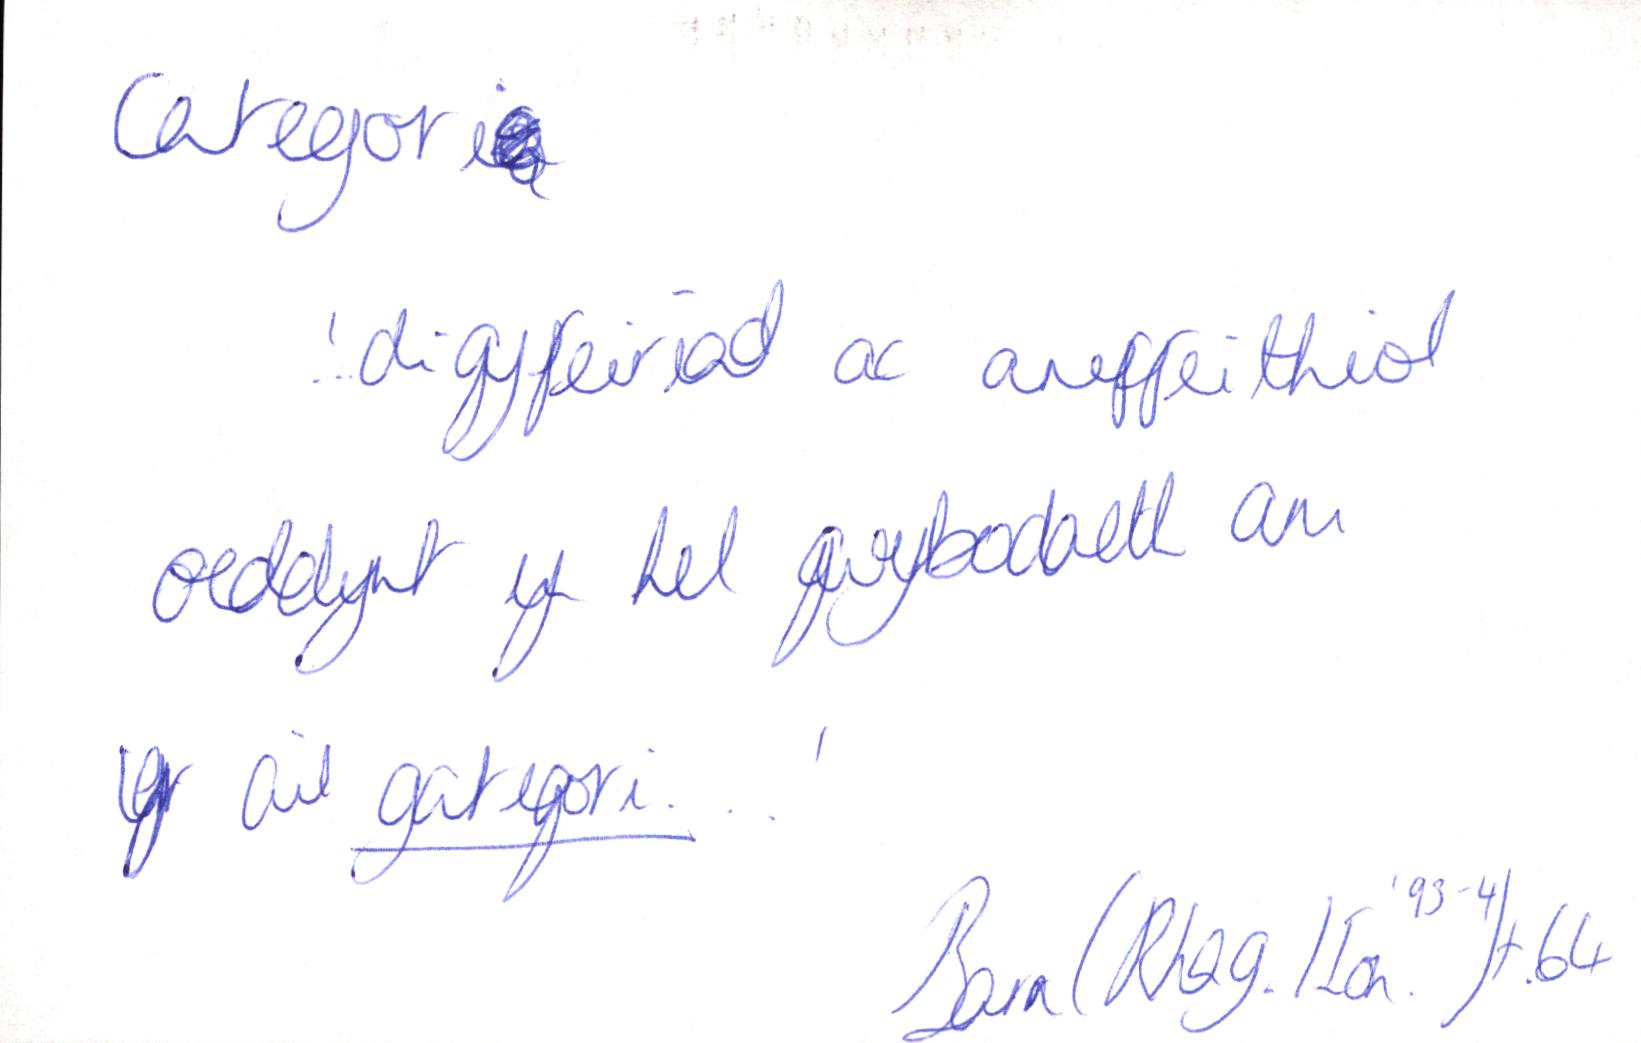 Categori
'...digyfeiriad ac aneffeithiol
oeddynt yn hel gwybodaeth am
yr ail gategori...'
Barn (Rhag./Ion. '93-4) t.64